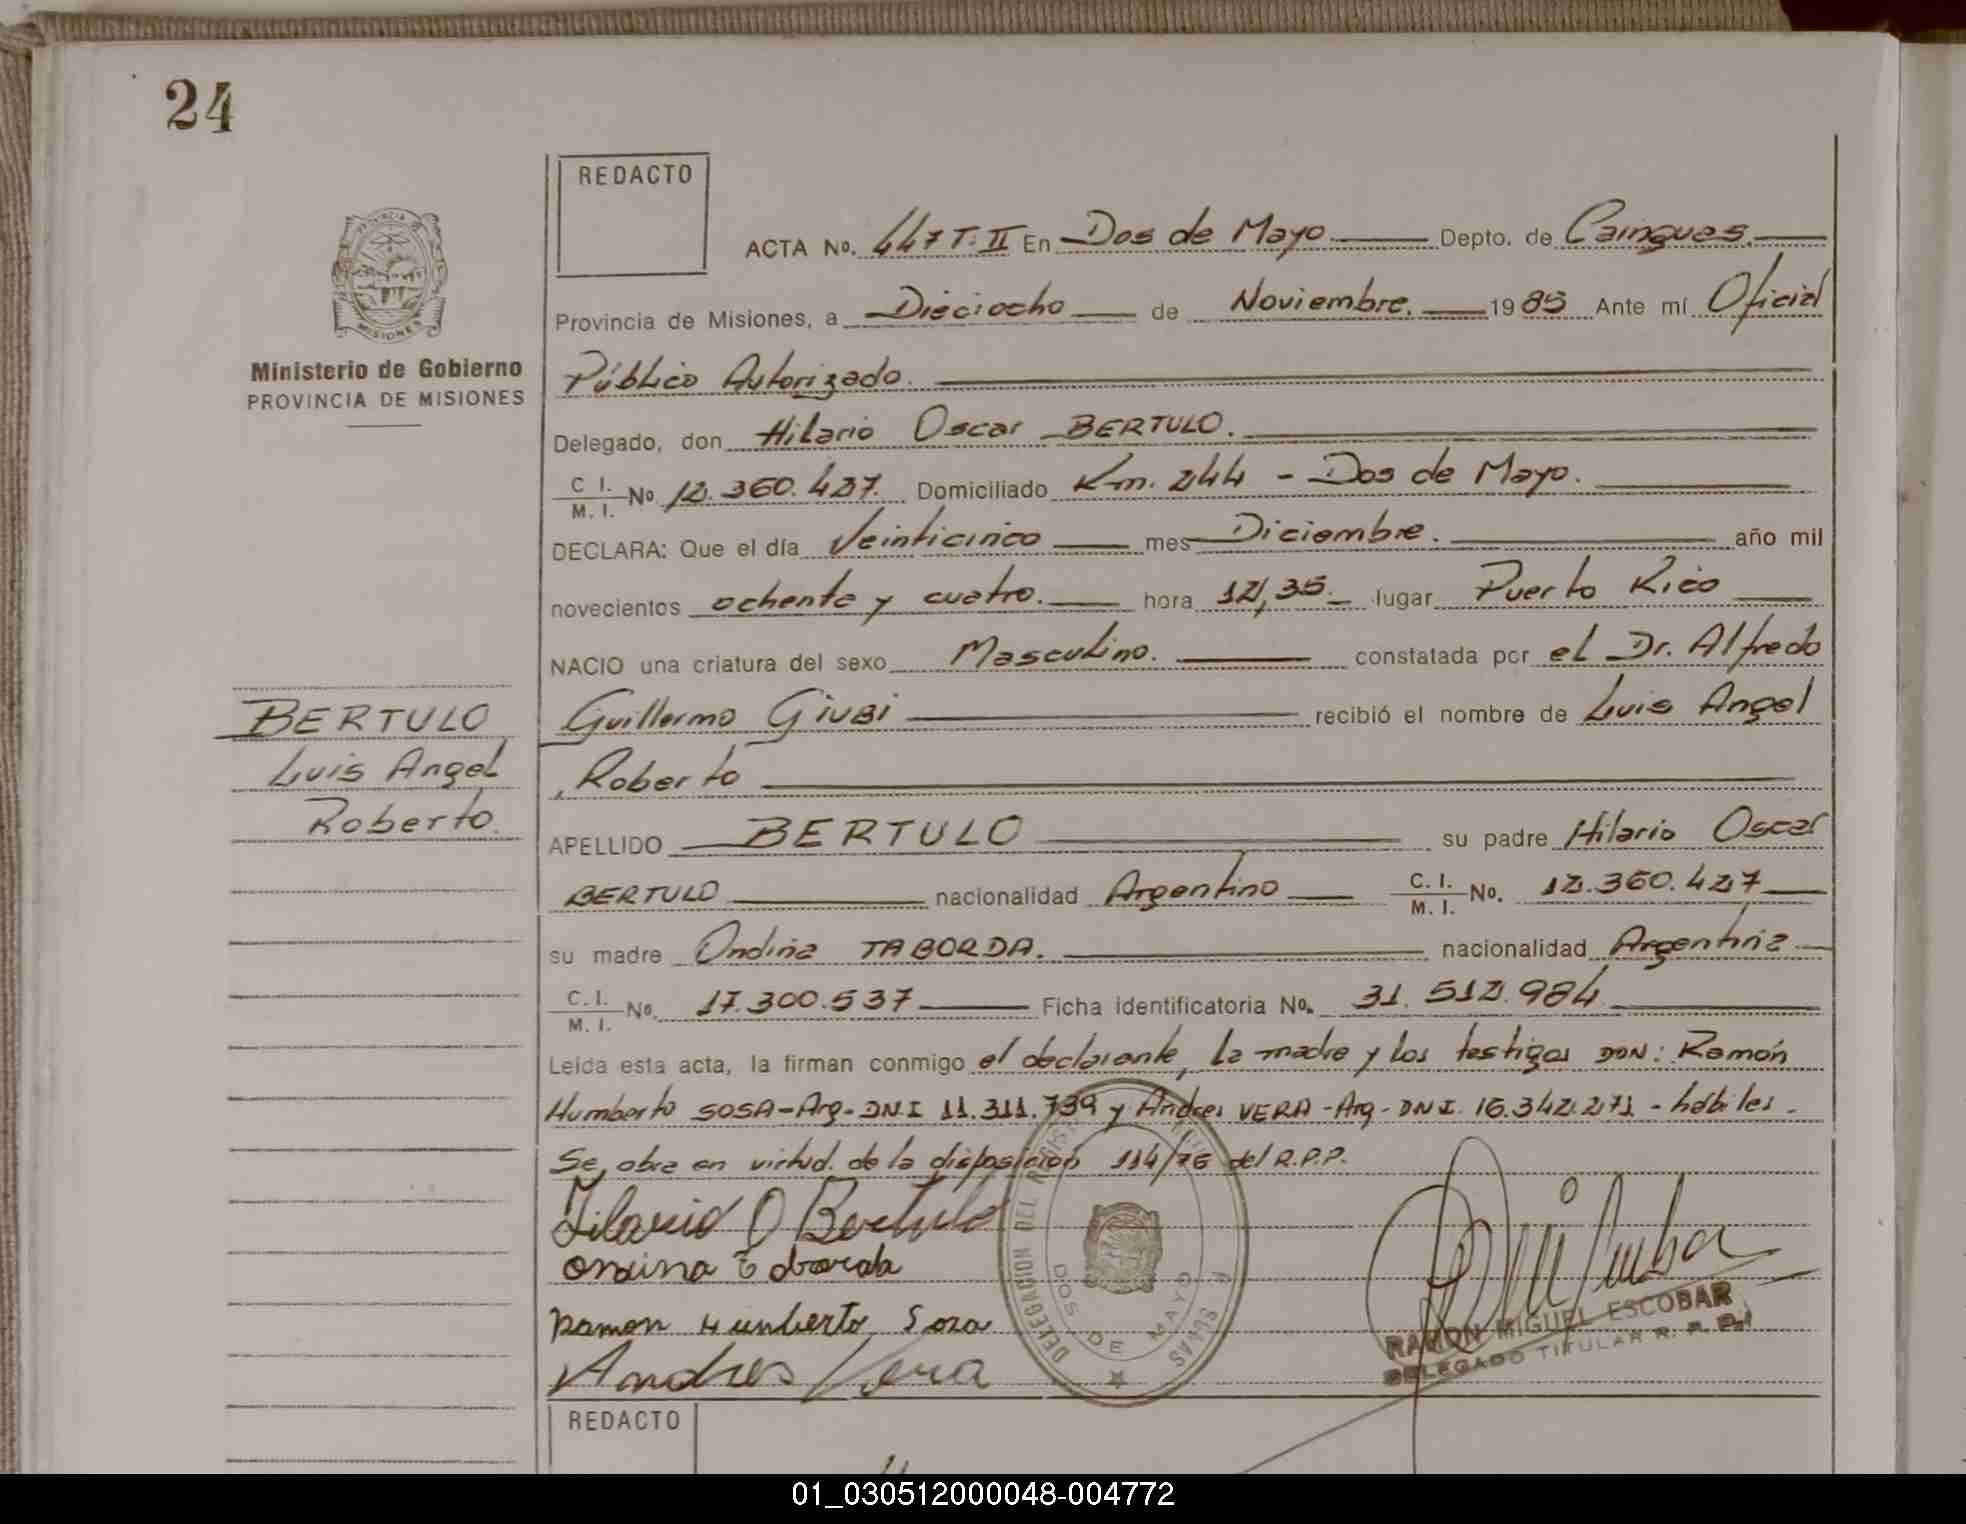 24
REDACTO
ACTA No. 447 T. II En Dos de Mayo. Depto. de Cainguas.
Provincia de Misiones, a Dieciocho de Noviembre. 1985 Ante mí Oficial
Ministerio de Gobierno
PROVINCIA DE MISIONES
Público Autorizado.
Delegado, don Hilario Oscar BERTULO.
C I. M. I. No. 12.360.427. Domiciliado Km. 244 - Dos de Mayo.
DECLARA: Que el día Veinticinco mes Diciembre. año mil
novecientos ochenta y cuatro. hora 12,35. lugar Puerto Rico
NACIO una criatura del sexo Masculino. constatada por el Dr. Alfredo
Guillermo GIUBI recibió el nombre de Luis Angel
Roberto
BERTULO
Luis Angel
Roberto.
APELLIDO BERTULO su padre Hilario Oscar
BERTULO nacionalidad Argentino C. I. M. I. No. 12.360.427
su madre Ondina TABORDA. nacionalidad Argentina
C. I. M. I. No. 17.300.537 Ficha identificatoria No. 31.512.984
Leída esta acta, la firman conmigo el declarante, la madre y los testigos DON: Ramón
Humberto SOSA-Arg-DNI 11.311.739 y Andres VERA-Arg-DNI. 16.342.271 - hábiles.
Se obra en virtud. de la disposición 114/76 del R.P.P.
Hilario O Bertulo
Ramon Humberto Sosa
Andres Vera
DELEGACION DEL REGISTRO
DOS DE MAYO
RAMON MIGUEL ESCOBAR
DELEGADO TITULAR R. P. P.
REDACTO
01_030512000048-004772